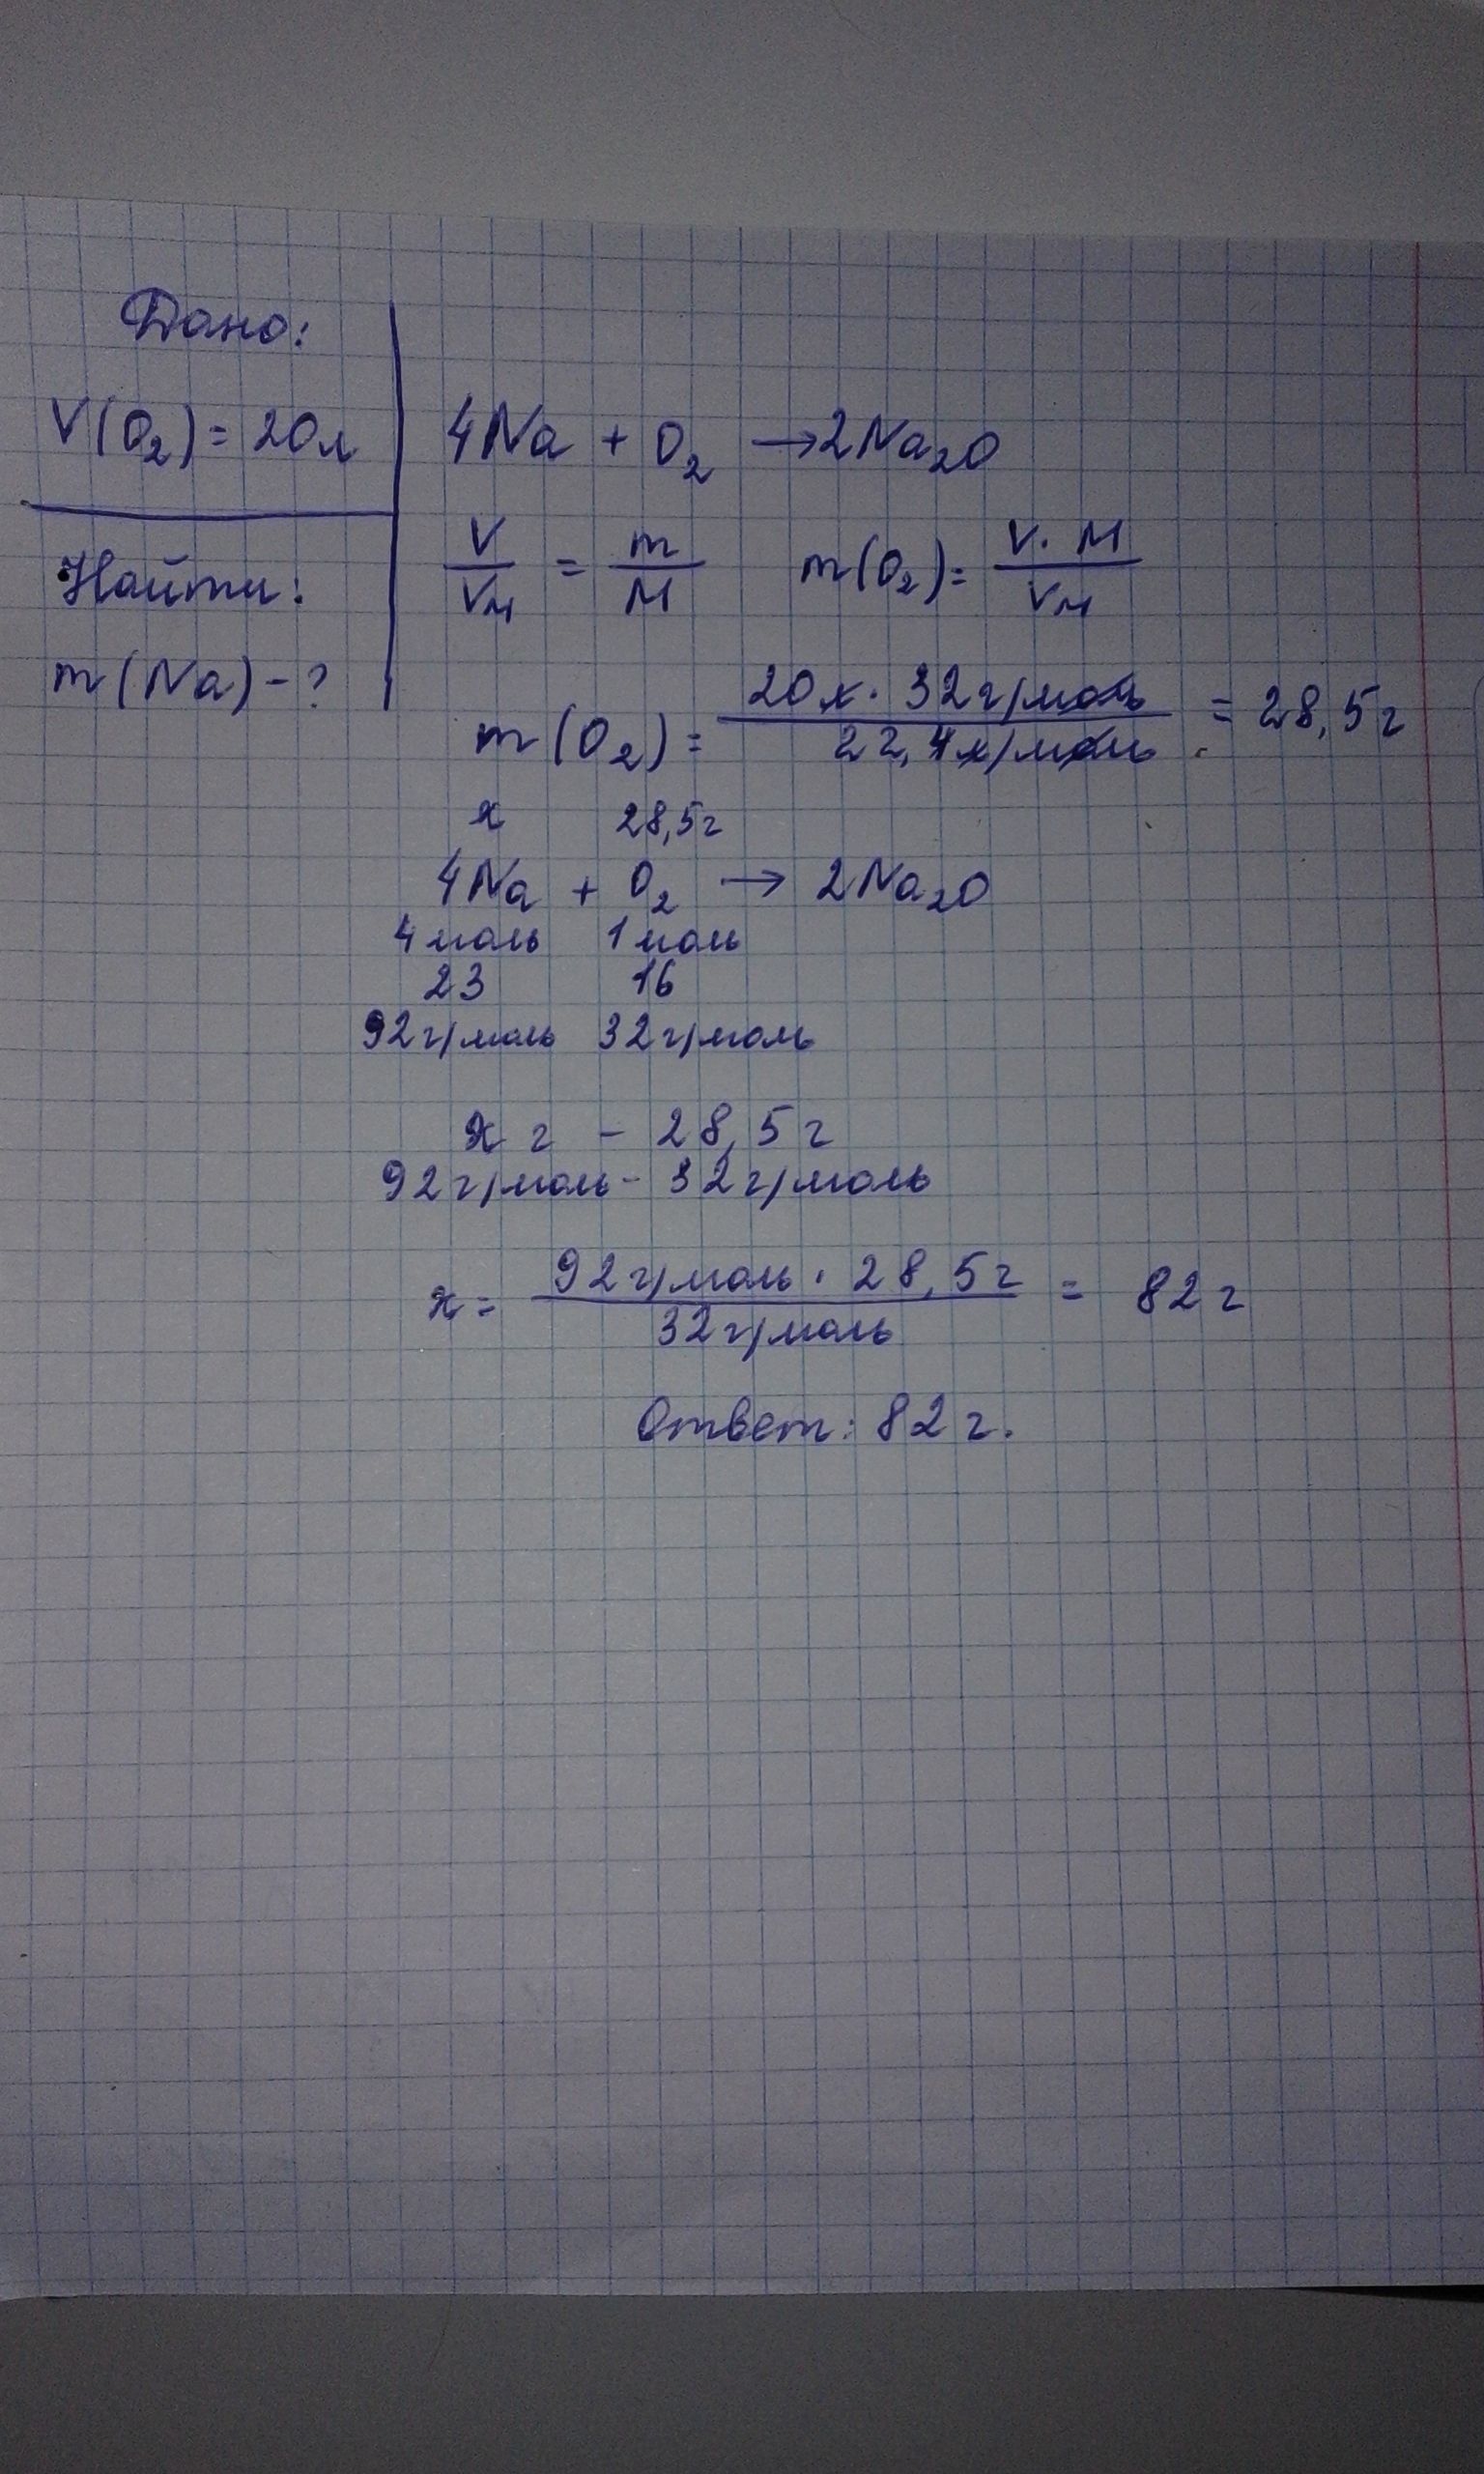 Дано:
V(O₂) = 20л
Найти:
m(Na) - ?
4Na + O₂ → 2Na₂O
V/Vм = m/M m(O₂) = V · M/Vм
m(O₂) = 20л · 32г/моль/22,4л/моль = 28,5г
x 28,5г
4Na + O₂ → 2Na₂O
4моль 1моль
23 16
92г/моль 32г/моль
x г - 28,5г
92г/моль - 32г/моль
x = 92г/моль · 28,5г/32г/моль = 82г
Ответ: 82г.